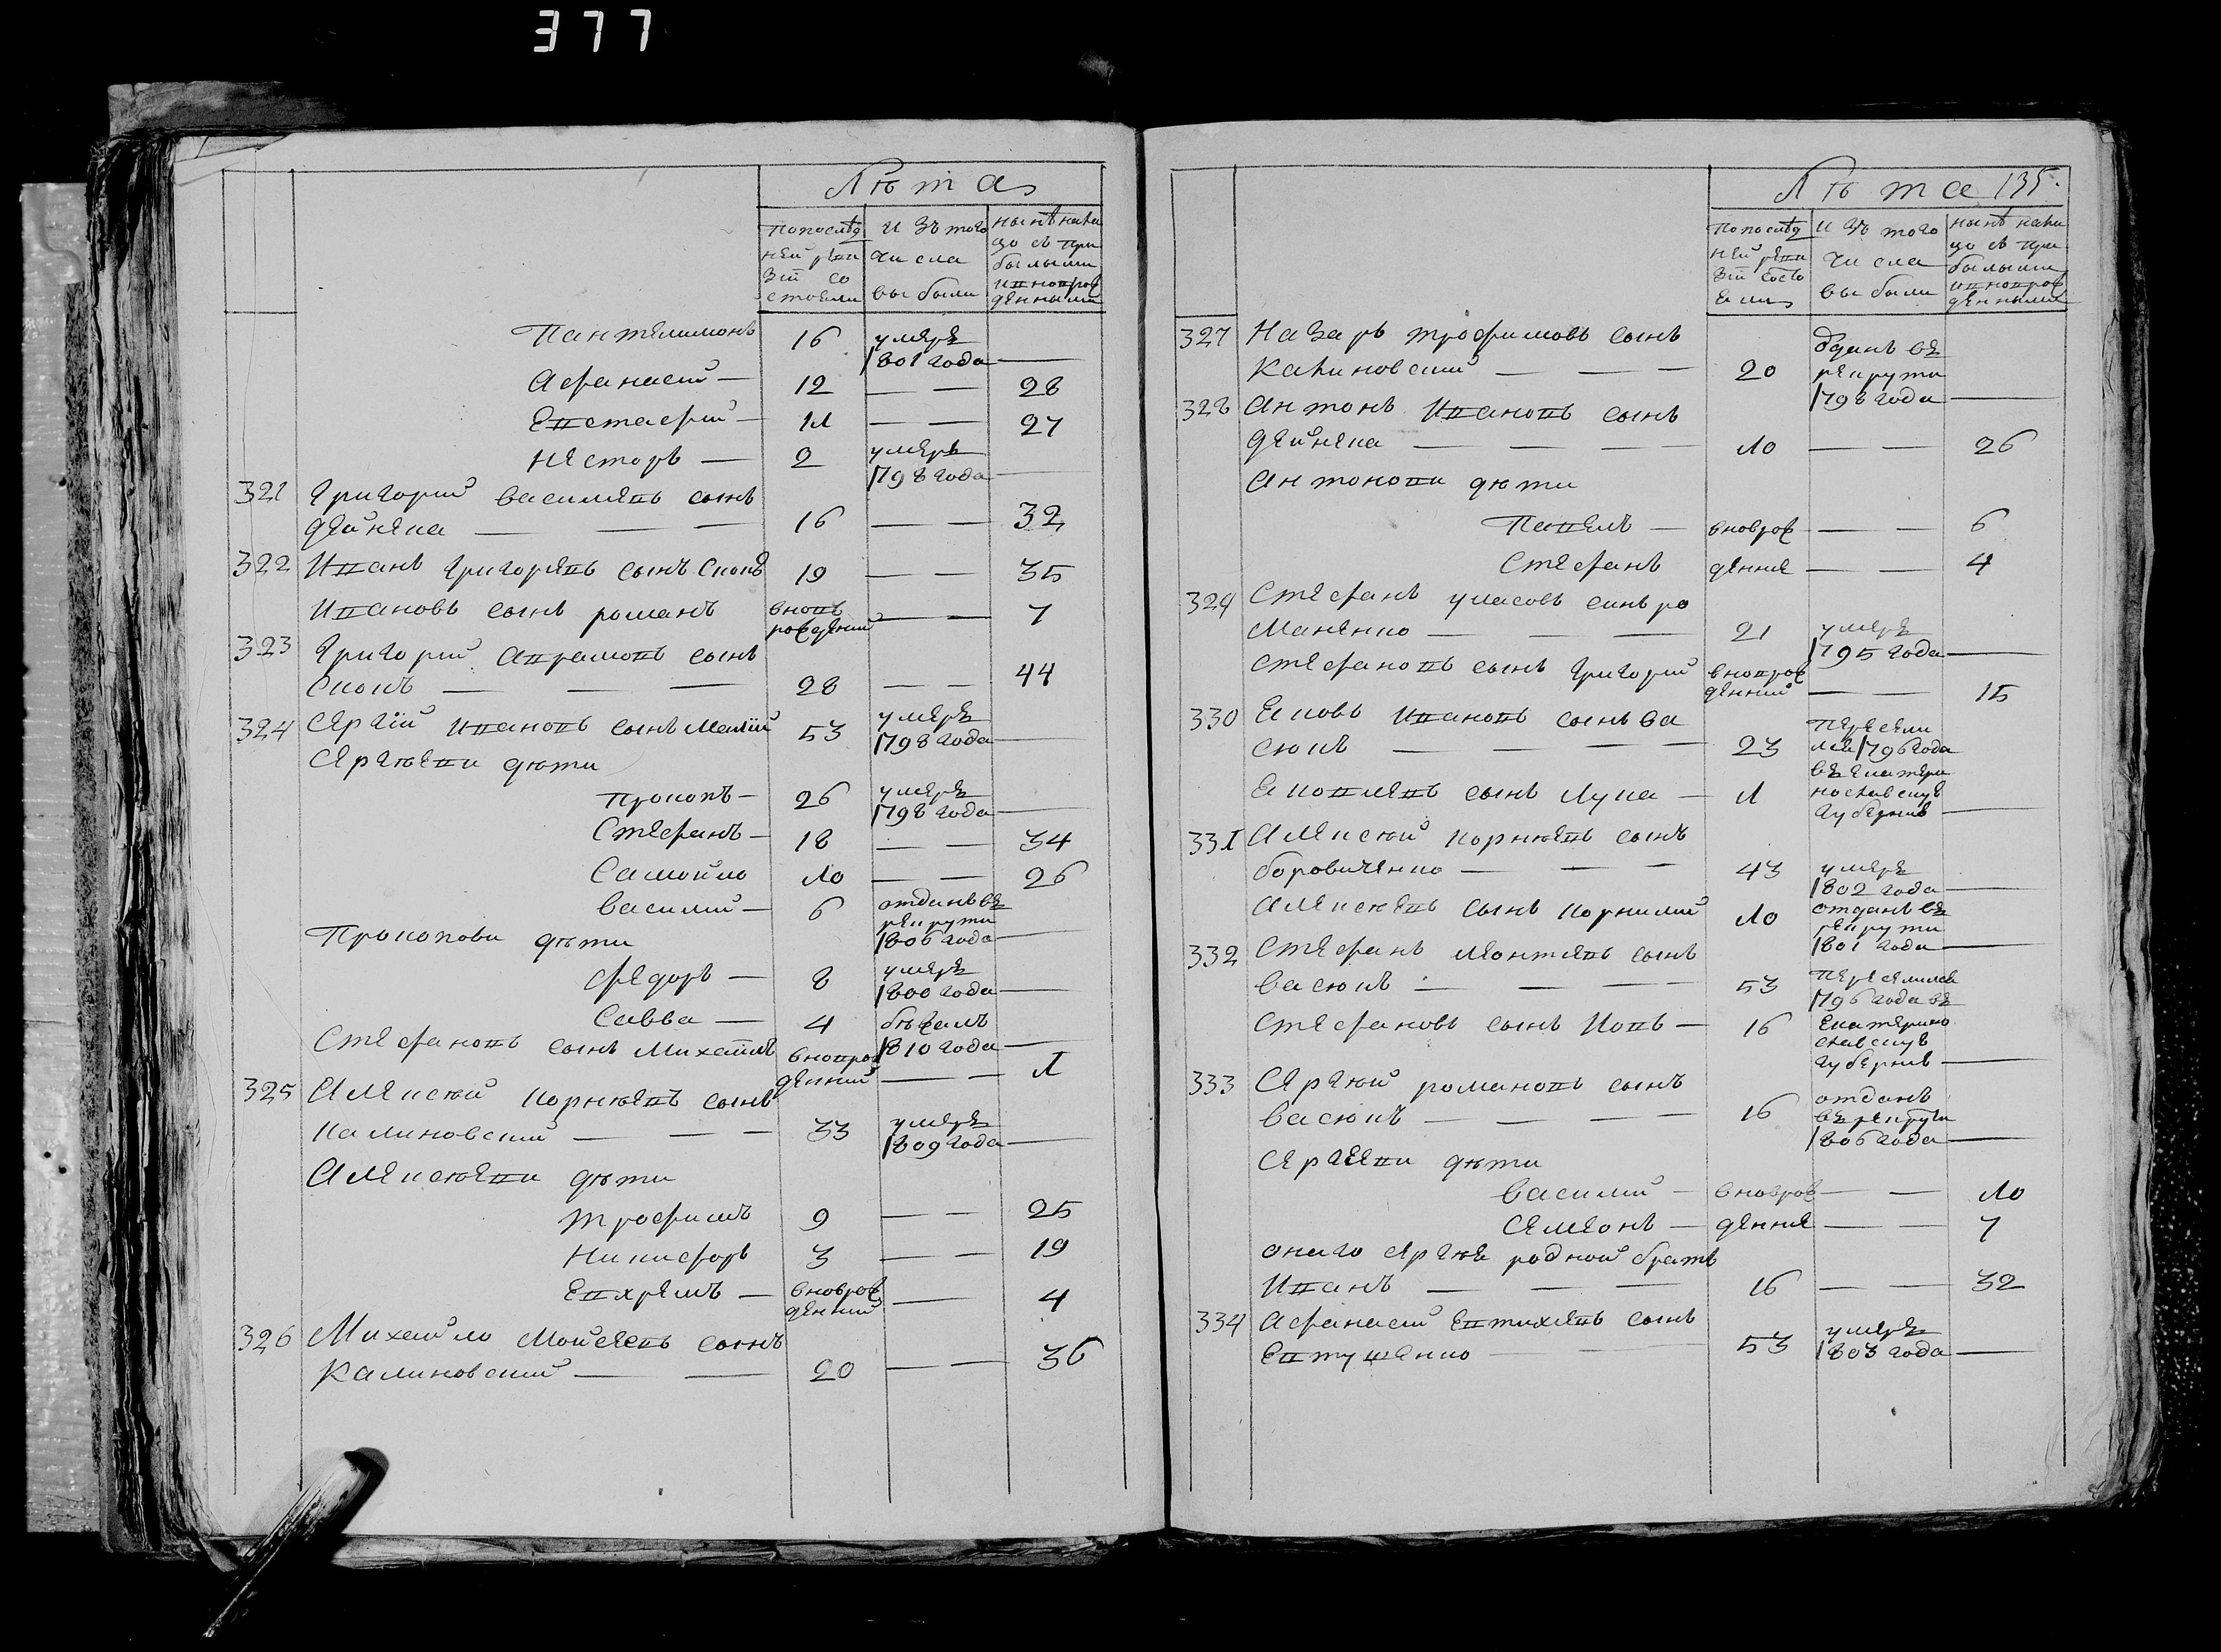 377
Лѣта
По послѣд
ней реви
зіи со
стояли
и зъ того
числа
выбыли
нынѣ нали
цо съ при
былыми
и вновьрож
денными
Пантелимонъ 16 умеръ
1801 года
Афанасий 12 28
Евстафий 11 27
Несторъ 2 умеръ
1798 года
321 Григорий василиевъ сынъ
дейнека 16 32
322 Иванъ Григориевъ сынъ Скокъ 19 35
Ивановъ сынъ романъ вновъ
рожденний 7
323 Григорий Аврамовъ сынъ
Скокъ 28 44
324 Сергій ивановъ сынъ Малий 53 умеръ
1798 года
Сергѣеви дѣти
Прокопъ 26 умеръ
1798 года
Стефанъ 18 34
Самойло 10 26
василий 6 отданъ въ
рекрути
1806 года
Прокопови дѣти
Федоръ 8 умеръ
1800 года
Савва 4 бѣжалъ
1810 года
Стефановъ сынъ Михайлъ вноврож
денний 1
325 Алексѣй корнѣевъ сынъ
калиновский 33 умеръ
1809 года
Алексѣеви дѣти
трофимъ 9 25
Никифоръ 3 19
Евхремъ вноврож
денний 4
326 Михайло Мойсеевъ сынъ
Калиновский 20 36
Лѣта 135.
По послѣд
ней реви
зіи состо
яли
и зъ того
числа
выбыли
нынѣ нали
цо съ при
былыми
и вновьрож
денными
327 Назаръ трофимовъ сынъ
Калиновский 20 отданъ въ
рекрути
1798 года
328 Антонъ Ивановъ сынъ
дейнека 10 26
Антонови дѣти
Павелъ вноврож 6
Стефанъ денние 4
329 Стефанъ уласовъ синъ ро
маненко 21 умеръ
1795 года
Стефановъ сынъ Григорий вноврож
денний 15
330 Яковъ ивановъ сынъ ва
сюкъ 23 переселил
лся 1796 года
въ екатери
нославскую
губернию
Яковлевъ сынъ лука 1
331 Алексѣй корнѣевъ сынъ
боровиченко 43 умеръ
1802 года
Алексѣевъ сынъ корнилий 10 отданъ въ
рекрути
1801 года
332 Стефанъ леонтиевъ сынъ
васюкъ 53 переселился
1796 года въ
Екатерино
славскую
губернию
Стефановъ сынъ Иовъ 16
333 Сергѣй романовъ сынъ
васюкъ 16 отданъ
въ рекрути
1806 года
Сергеви дѣти
василий вноврож 10
Семеонъ денние 7
онаго сергѣя родной братъ
Иванъ 16 32
334 Афанасий Евтихиевъ сынъ
Евтушенко 53 умеръ
1803 года